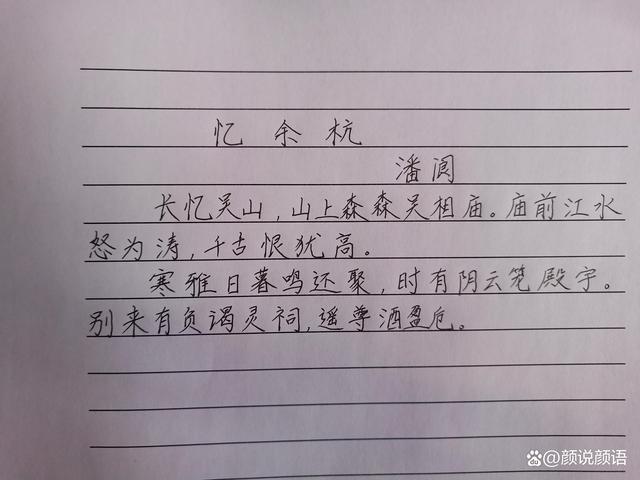 忆余杭
潘阆
长忆吴山,山上森森吴相庙。庙前江水
怒为涛,千古恨犹高。
寒雅日暮鸣还聚,时有阴云笼殿宇。
别来有负谒灵祠,遥尊酒盈卮。
@颜说颜语